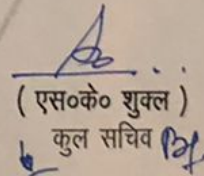 ( एस०के० शुक्ल )
कुल सचिव